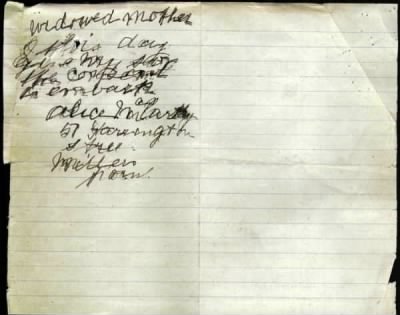 widowed Mother
I this day
give my son
the consent
to embark
Alice McCarthy
51 Harrington
Stree
Willen